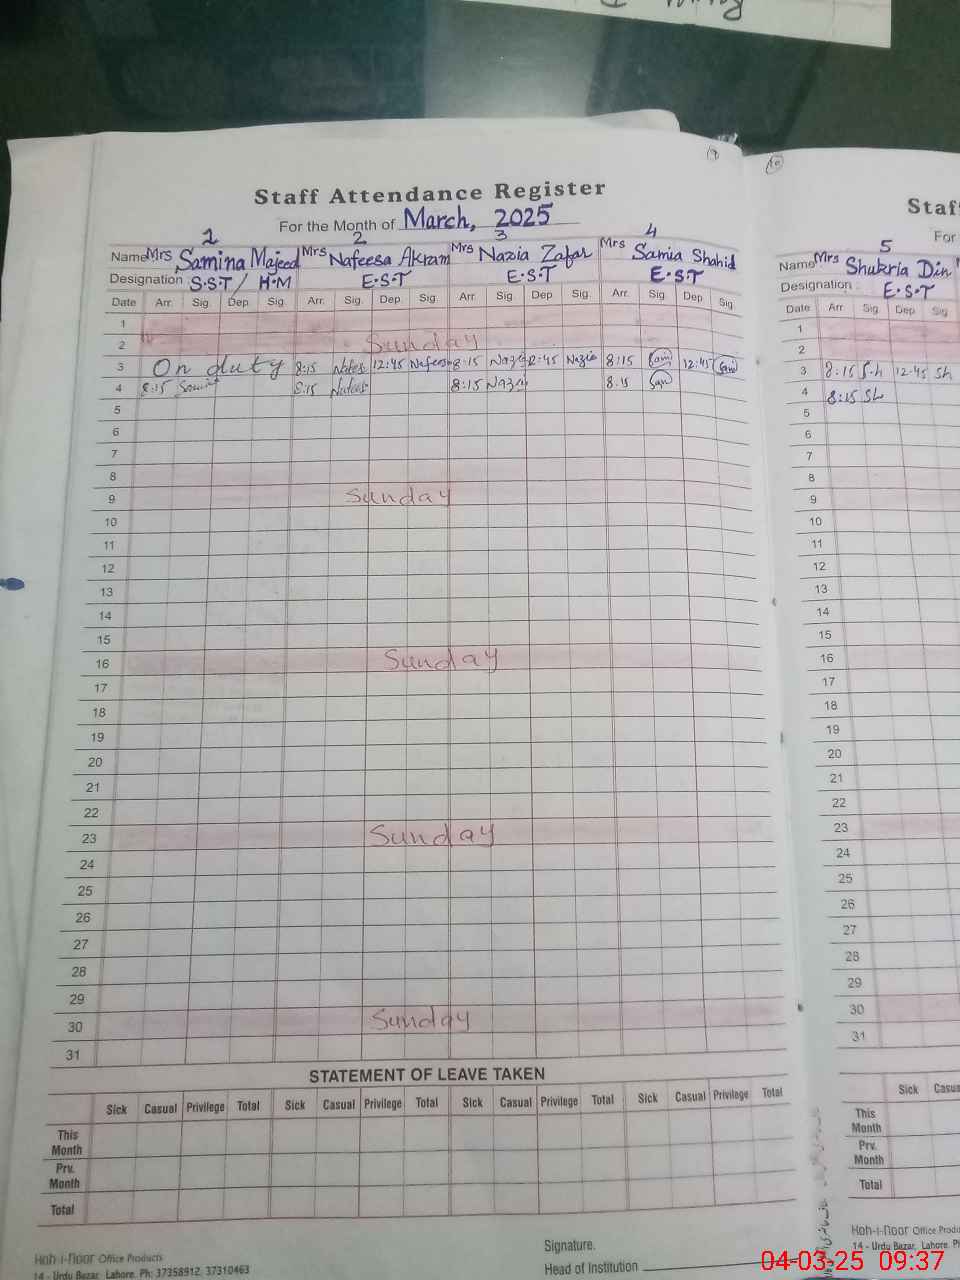 19
10
Staff Attendance Register
For the Month of March, 2025
1 2 3 4
Name Mrs Samina Majeed Mrs Nafeesa Akram Mrs Nazia Zafar Mrs Samia Shahid
Designation : S.S.T / H.M E.S.T E.S.T E.S.T
Date Arr. Sig. Dep Sig. Arr. Sig. Dep. Sig. Arr. Sig. Dep Sig. Arr. Sig. Dep Sig.
1
2 Sunday
3 On duty 8:15 12:45 8:15 12:45 Nazia 8:15 Sam 12:45 Sam
4 8:15 8:15 8:15 8:15 Sam
5
6
7
8
9 Sunday
10
11
12
13
14
15
16 Sunday
17
18
19
20
21
22
23 Sunday
24
25
26
27
28
29
30 Sunday
31
STATEMENT OF LEAVE TAKEN
Sick Casual Privilege Total Sick Casual Privilege Total Sick Casual Privilege Total Sick Casual Privilege Total
This Month
Prv. Month
Total
Signature.
Head of Institution
Koh-i-noor Office Products
14 - Urdu Bazar, Lahore. Ph: 37358912, 37310463
Staf
For
5
Name Mrs Shukria Din
Designation : E.S.T
Date Arr Sig Dep Sig
1
2
3 8:15 S.h 12:45 Sh
4 8:15 Sh
5
6
7
8
9
10
11
12
13
14
15
16
17
18
19
20
21
22
23
24
25
26
27
28
29
30
31
Sick Casua
This Month
Prv. Month
Total
Koh-i-noor Office Produ
14 - Urdu Bazar, Lahore. P
04-03-25 09:37